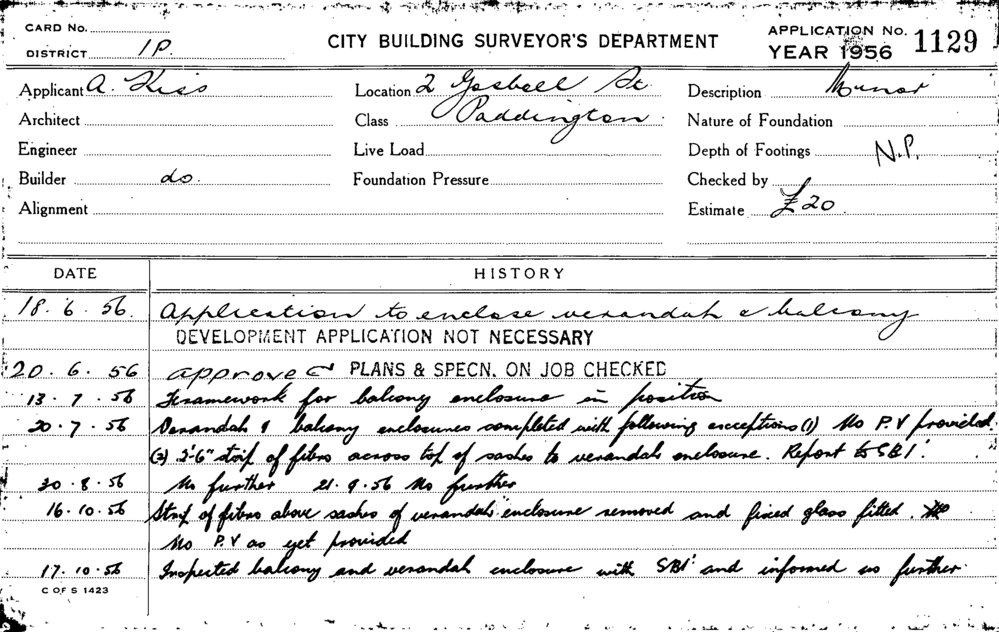 CARD No.
DISTRICT 1P.
CITY BUILDING SURVEYOR'S DEPARTMENT
APPLICATION No. 1129
YEAR 1956
Applicant A. Kiss
Location 2 Gosbell St.
Description Minor
Architect
Class Paddington.
Nature of Foundation
Engineer
Live Load
Depth of Footings N.P.
Builder do.
Foundation Pressure
Checked by
Alignment
Estimate £20.
DATE HISTORY
18.6.56. Application to enclose verandah & balcony
DEVELOPMENT APPLICATION NOT NECESSARY
20.6.56 approved PLANS & SPECN. ON JOB CHECKED
13.7.56 Framework for balcony enclosure in position
20.7.56 Verandah & balcony enclosures completed with following exceptions (1) No P.V provided.
(2) 2'-6" strip of fibro across top of sashes to verandah enclosure. Report to SBI.
20.8.56 No further 21.9.56 No further
16.10.56 Strip of fibro above sashes of verandah enclosure removed and fixed glass fitted.
No P.V as yet provided
17.10.56 Inspected balcony and verandah enclosure with SBI and informed no further.
C OF S 1423